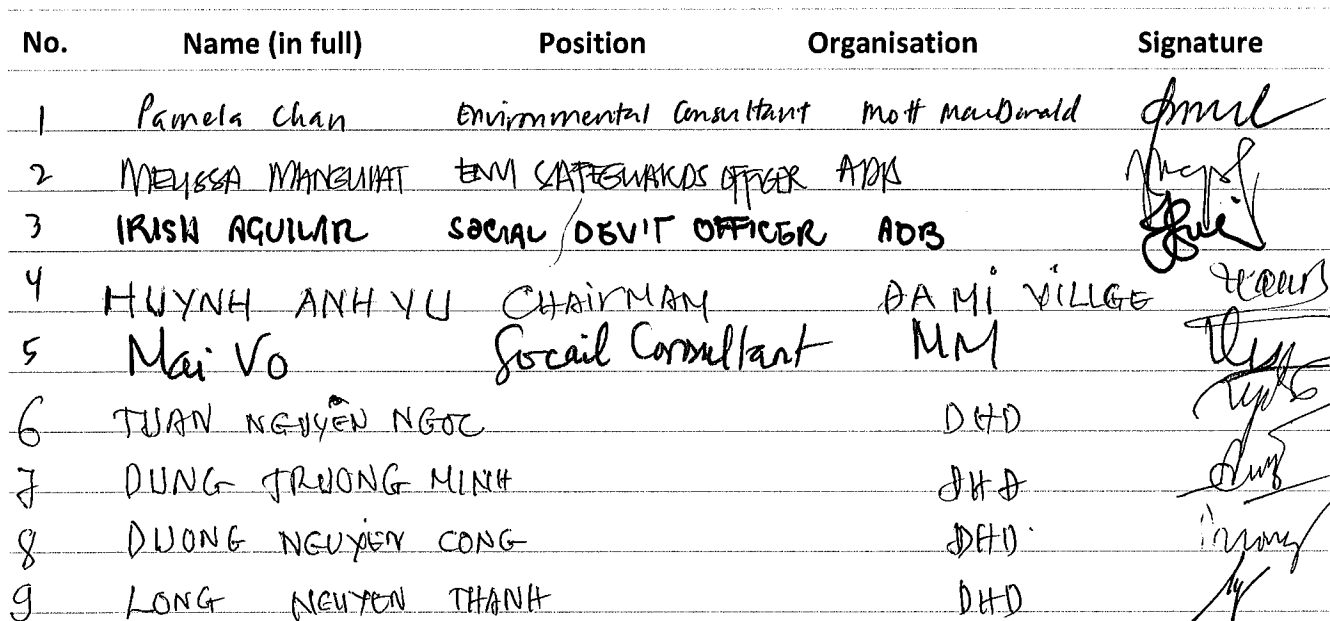 No. Name (in full) Position Organisation Signature
1 Pamela Chan Environmental Consultant Mott MacDonald
2 MELISSA MANGUIAT ENV SAFEGUARDS OFFICER ADB
3 IRISH AGUILAR SOCIAL DEV'T OFFICER ADB
4 HUYNH ANH VU CHAIRMAN ĐA MI VILLGE
5 Mai Vo Socail Consultant MM
6 TUAN NGUYÊN NGOC DHD
7 DUNG TRUONG MINH DHD
8 DUONG NGUYEN CONG DHD
9 LONG NGUYEN THANH DHD